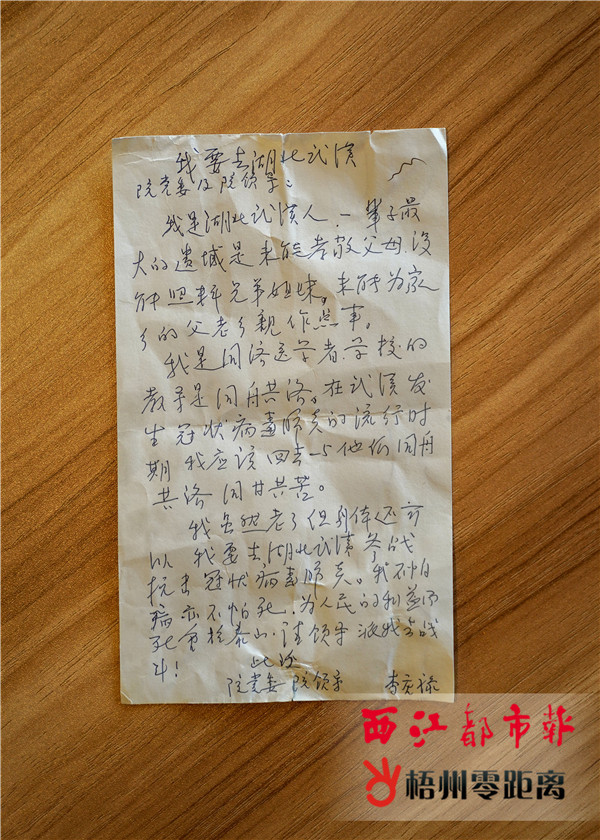 我要去湖北武汉
院党委及院领导:
我是湖北武汉人.一辈子最
大的遗憾是未能孝敬父母,没
能照料兄弟姐妹,未能为家
乡的父老乡亲作些事。
我是同济医学者.学校的
教导是同舟共济。在武汉发
生冠状病毒肺炎的流行时
期 我应该回去与他们同舟
共济 同甘共苦。
我虽然老了但身体还可
以 我要去湖北武汉参战
抗击冠状病毒肺炎。我不怕
病亦不怕死.为人民的利益而
死重于泰山.请领导派我去战
斗!
此致
院党委 院领导 李
西江都市报
梧州零距离